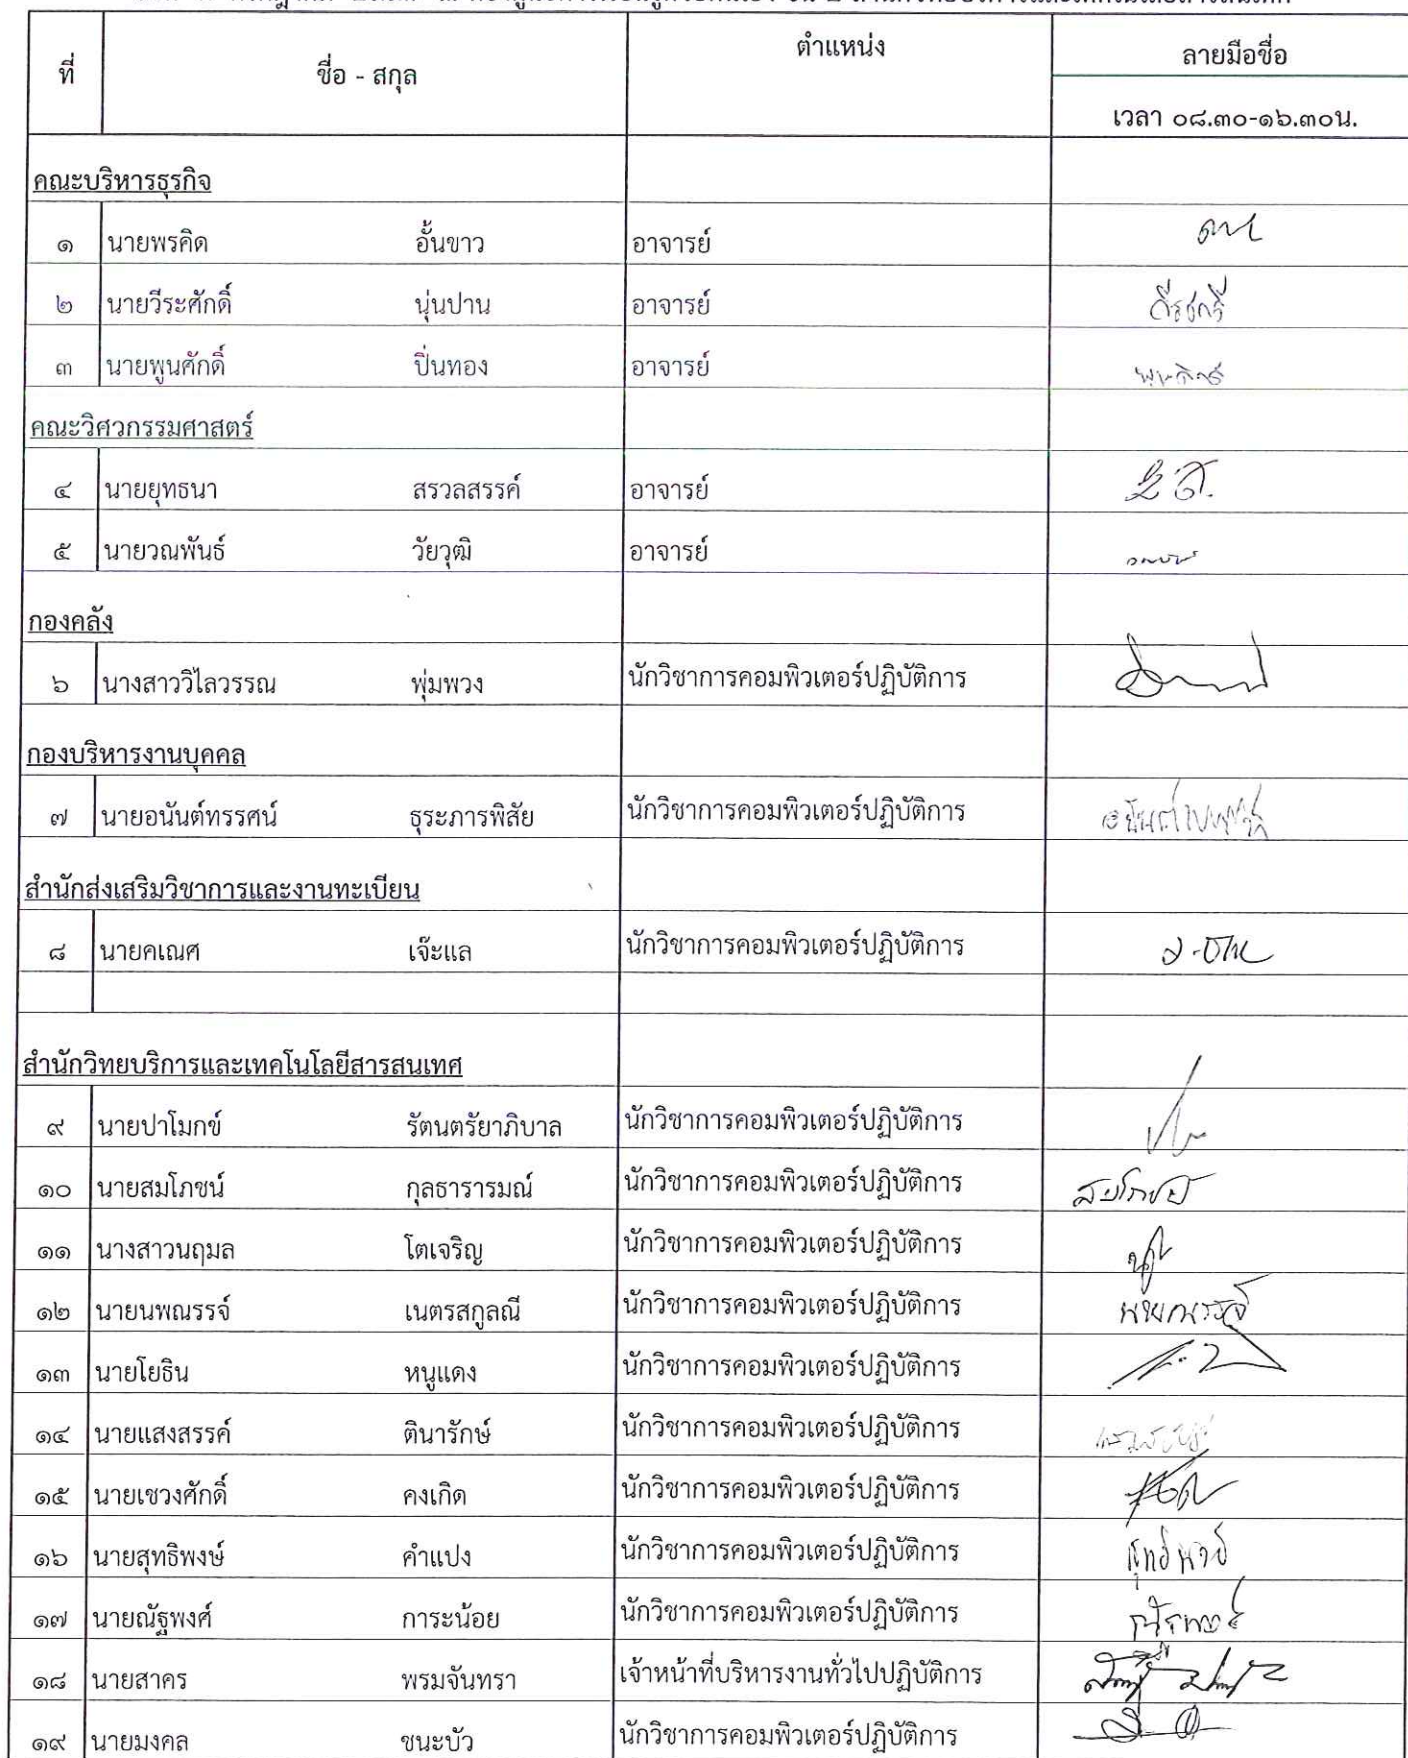 ที่ ชื่อ - สกุล ตำแหน่ง ลายมือชื่อ
เวลา ๐๘.๓๐-๑๖.๓๐น.
คณะบริหารธุรกิจ
๑ นายพรคิด อั้นขาว อาจารย์
๒ นายวีระศักดิ์ นุ่นปาน อาจารย์
๓ นายพูนศักดิ์ ปิ่นทอง อาจารย์
คณะวิศวกรรมศาสตร์
๔ นายยุทธนา สรวลสรรค์ อาจารย์
๕ นายวณพันธ์ วัยวุฒิ อาจารย์
กองคลัง
๖ นางสาววิไลวรรณ พุ่มพวง นักวิชาการคอมพิวเตอร์ปฏิบัติการ
กองบริหารงานบุคคล
๗ นายอนันต์ทรรศน์ ธุระภารพิสัย นักวิชาการคอมพิวเตอร์ปฏิบัติการ
สำนักส่งเสริมวิชาการและงานทะเบียน
๘ นายคเณศ เจ๊ะแล นักวิชาการคอมพิวเตอร์ปฏิบัติการ
สำนักวิทยบริการและเทคโนโลยีสารสนเทศ
๙ นายปาโมกข์ รัตนตรัยาภิบาล นักวิชาการคอมพิวเตอร์ปฏิบัติการ
๑๐ นายสมโภชน์ กุลธารารมณ์ นักวิชาการคอมพิวเตอร์ปฏิบัติการ
๑๑ นางสาวนฤมล โตเจริญ นักวิชาการคอมพิวเตอร์ปฏิบัติการ
๑๒ นายนพณรรจ์ เนตรสกูลณี นักวิชาการคอมพิวเตอร์ปฏิบัติการ
๑๓ นายโยธิน หนูแดง นักวิชาการคอมพิวเตอร์ปฏิบัติการ
๑๔ นายแสงสรรค์ ตินารักษ์ นักวิชาการคอมพิวเตอร์ปฏิบัติการ
๑๕ นายเชวงศักดิ์ คงเกิด นักวิชาการคอมพิวเตอร์ปฏิบัติการ
๑๖ นายสุทธิพงษ์ คำแปง นักวิชาการคอมพิวเตอร์ปฏิบัติการ
๑๗ นายณัฐพงศ์ การะน้อย นักวิชาการคอมพิวเตอร์ปฏิบัติการ
๑๘ นายสาคร พรมจันทรา เจ้าหน้าที่บริหารงานทั่วไปปฏิบัติการ
๑๙ นายมงคล ชนะบัว นักวิชาการคอมพิวเตอร์ปฏิบัติการ